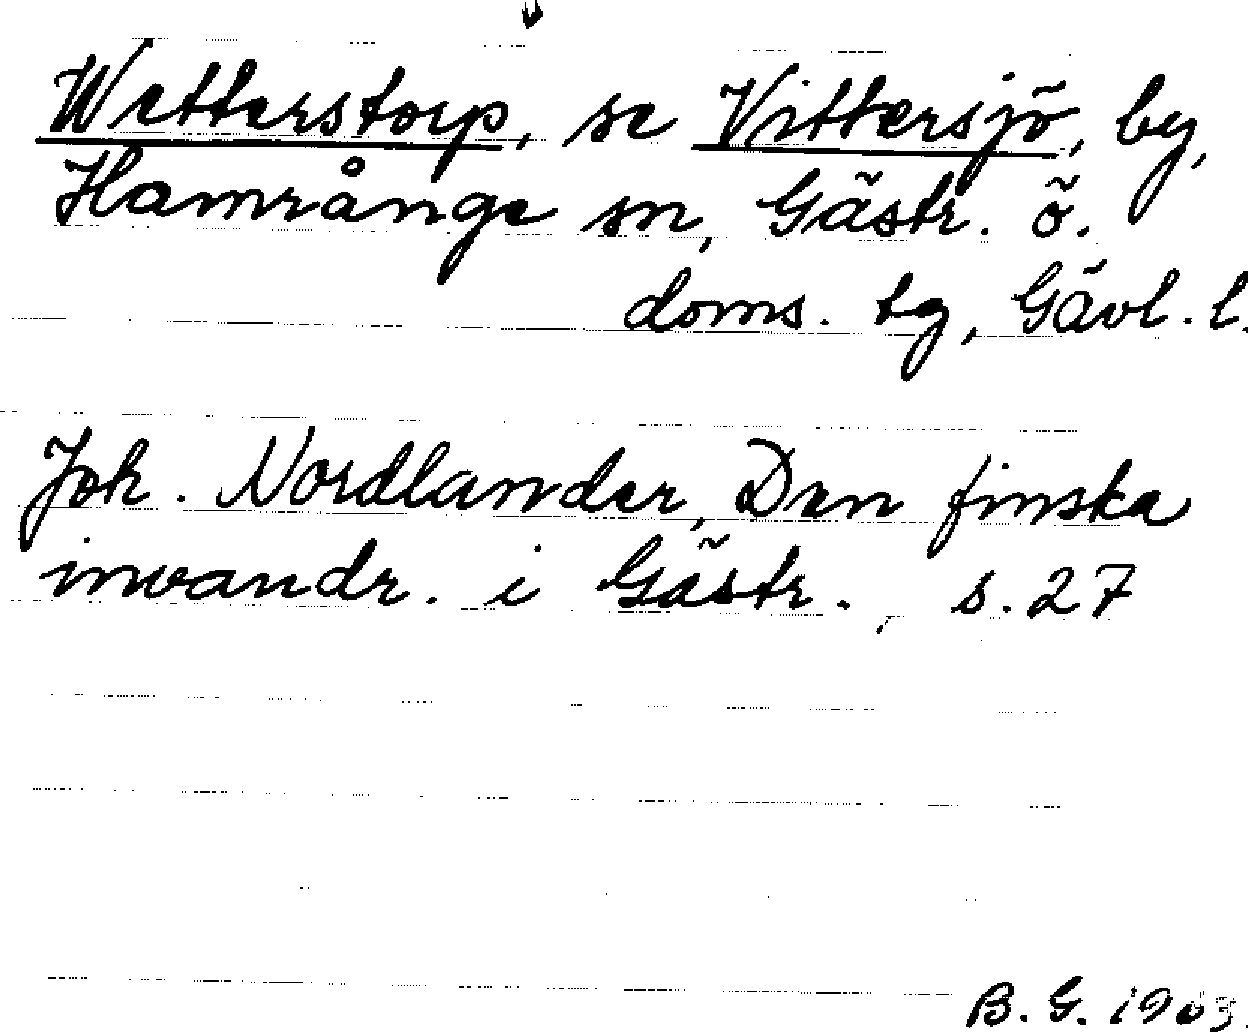 Wetterstorp, se Vittersjö, by,
Hamrånge sn, Gästr. ö.
doms. tg, Gävl. l.
Joh. Nordlander, Den finska
invandr. i Gästr., s. 27
B. G. 1963.